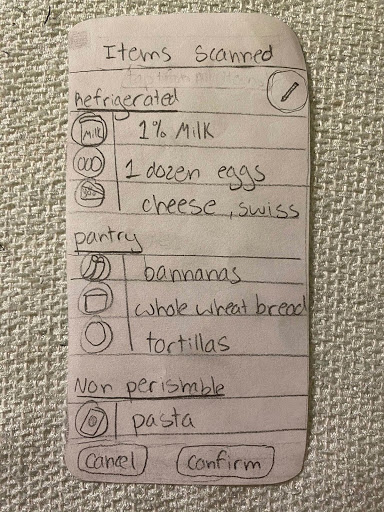 Items Scanned
Refrigerated
Milk
1% Milk
1 dozen eggs
cheese, swiss
pantry
bannanas
whole wheat bread
tortillas
Non perishable
pasta
Cancel
Confirm